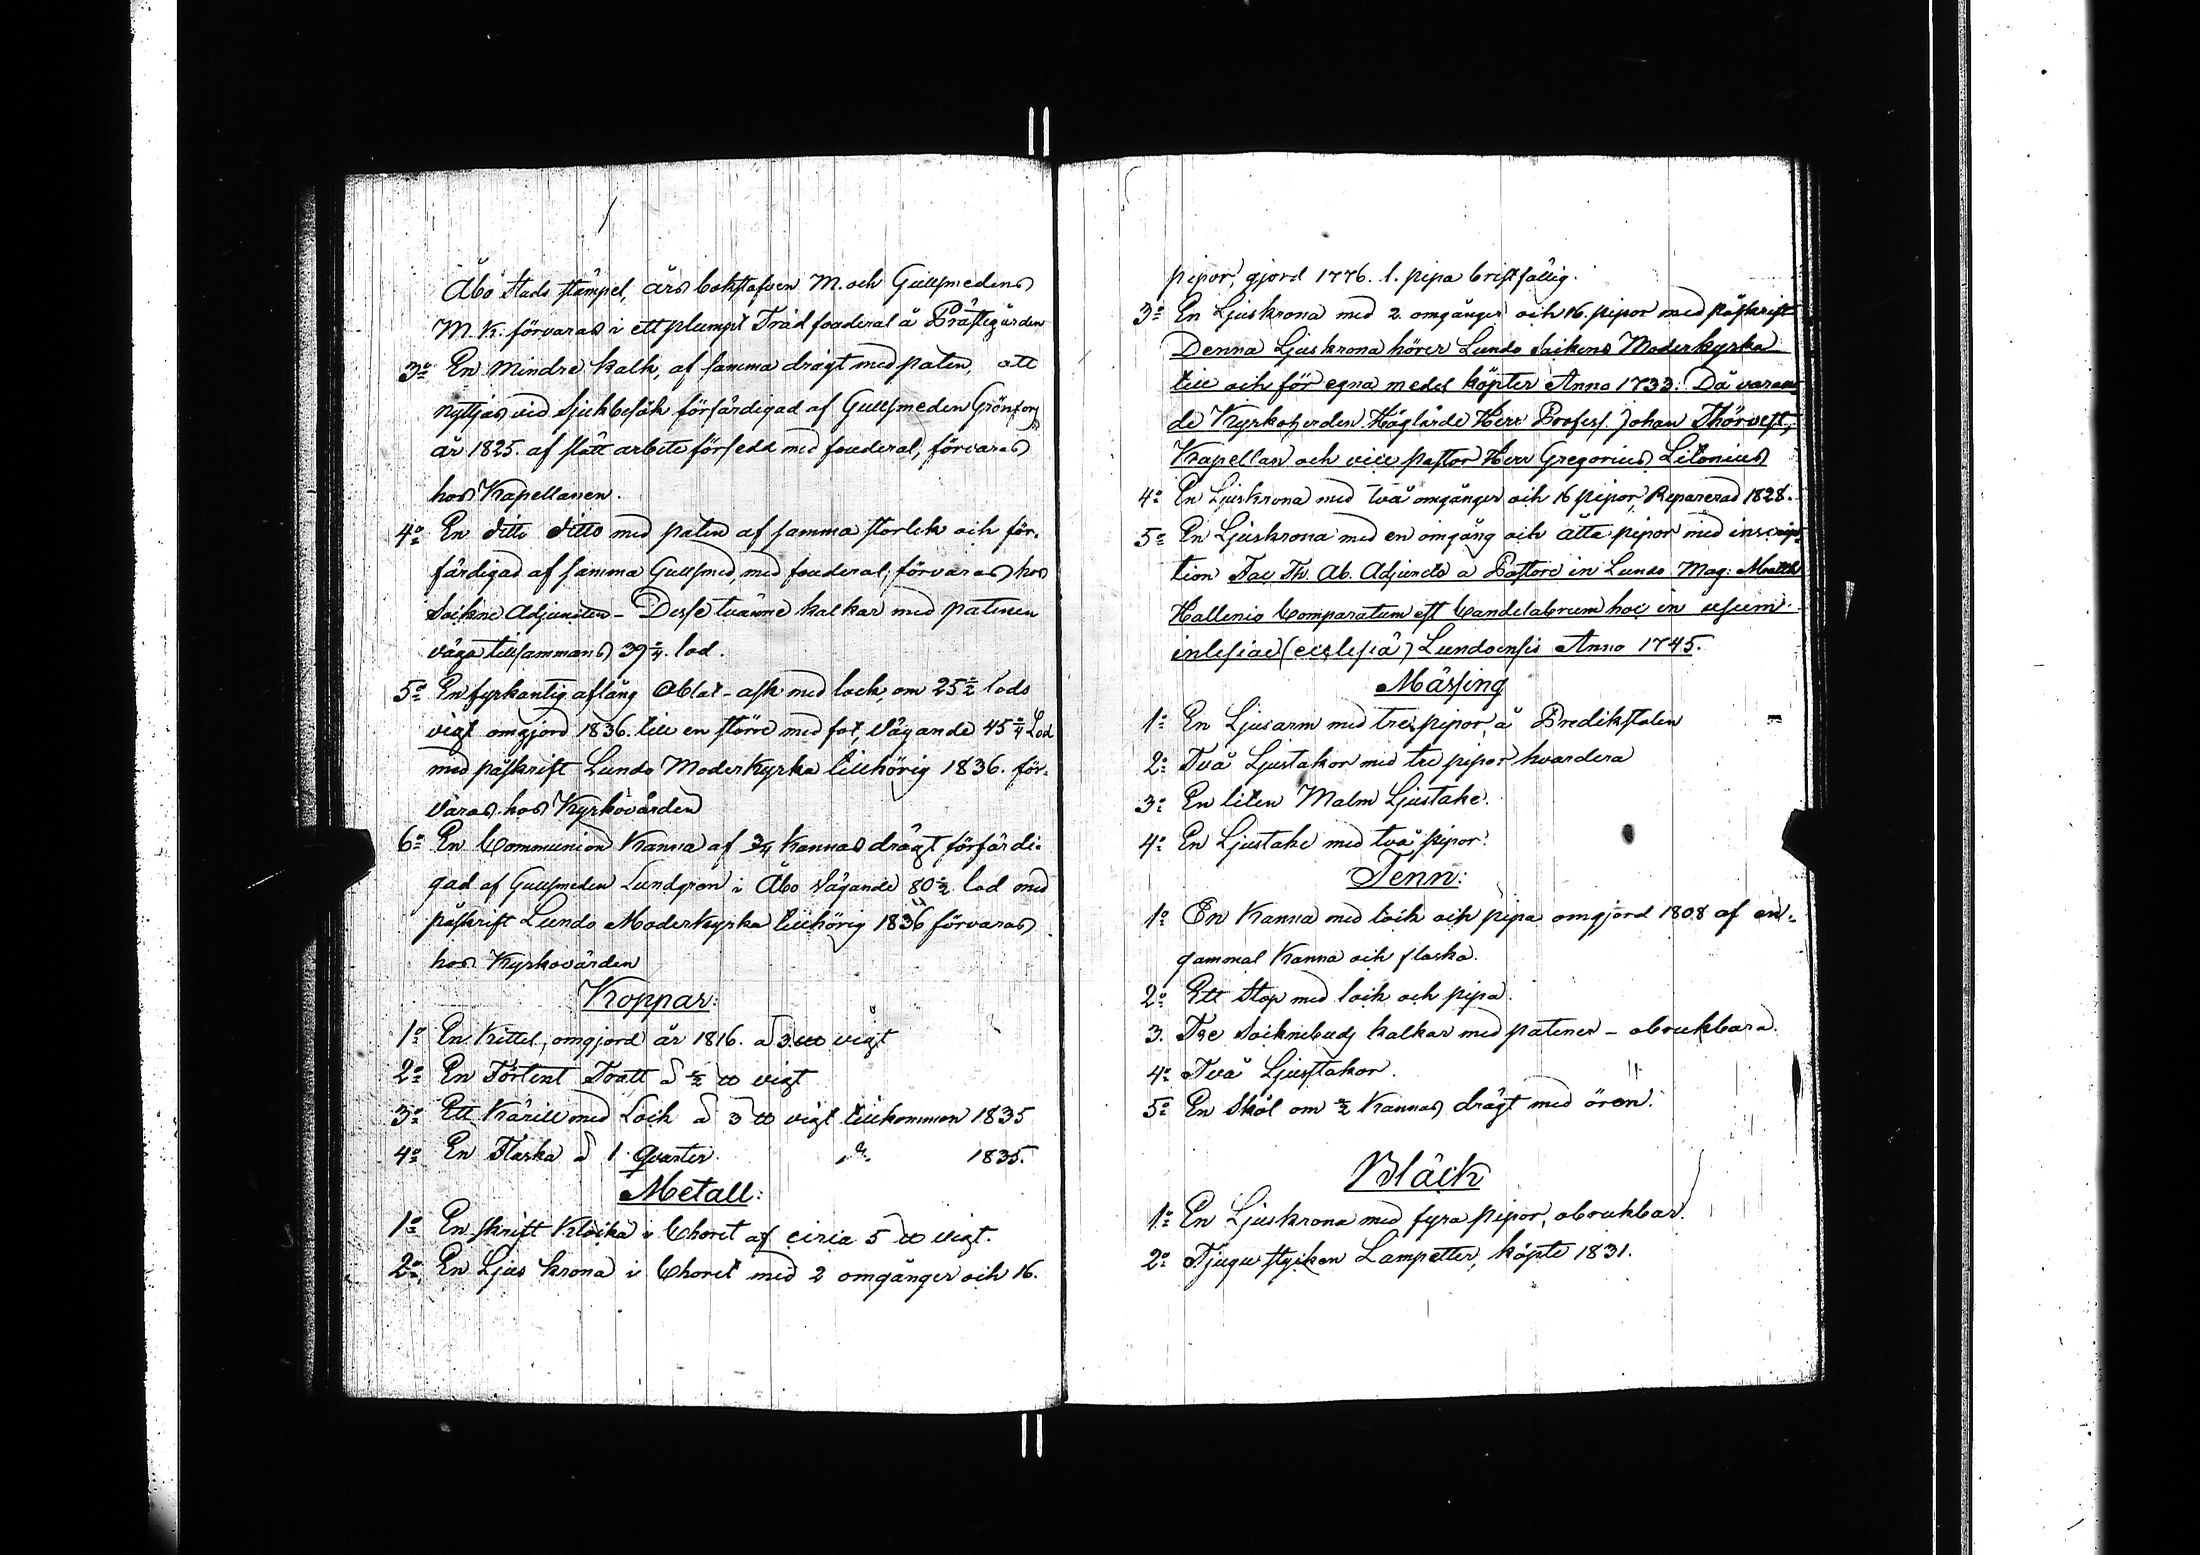 Åbo stads stämpel, års bokstafven M. och Gullsmedens
M. K. förvaras i ett plumpt Träd fouderal å Prästegården
3o En mindre kalk, af samma drägt med paten, att
nyttjas vid Sjukbesök förfärdigad af Gullsmeden Grönfors
år 1825. af slätt arbete försedd med fouderal, förvaras
hos Kapellanen.
4o En ditto ditto med paten af samma storlek och för-
färdigad af samma Gullsmed, med fouderal, förvaras hos
Sockne Adjuncten - Desse tvänne kalkar med patenen
väga tillsammans 39 lod.
5o En fyrkantig aflång Oblat-ask med lock, om 25½ lods
vigt omgjord 1836. till en större med fot, Vägande 45 Lod
med påskrift Lundo Moderkyrka tillhörig 1836. för-
varas hos Kyrkovärden
6o En Communion Kanna af 3/4 Kannas drägt förfärdi-
gad af Gullsmeden Lundgren i Åbo Vägande 80½ lod med
påskrift Lundo Moderkyrka tillhörig 1836 förvaras
hos Kyrkovärden
Koppar:
1o En Kittel, omgjord år 1816. a 3 ℔ vigt
2o En Förtent Tratt a ½ ℔ vigt
3o Ett Kärill med Lock a 3 ℔ vigt tillkommen 1835
4o En Flaska a 1 Quarter. 1835.
Metall:
1o En skrift Klocka i Choret af circa 5 ℔ vigt.
2o En Ljus krona i Choret med 2 omgånger och 16.
pipor, gjord 1776. 1. pipa bristfällig.
3o En Ljuskrona med 2 omgånger och 16. pipor med påskrift
Denna Ljuskrona hörer Lundo Sockens Moderkyrka
till och för egna medel köpter Anno 1733: Då varan-
de Kyrkoherden Höglärde Herr Profess. Johan Thorvest,
Kapellan och vice pastor Herr Gregorius Litonius
4o En Ljuskrona med två omgånger och 16 pipor, Reparerad 1828.
5o En Ljuskrona med en omgång och åtta pipor med inscrip-
tion Fac Th. Ab. Adjuncto a Pastore in Lundo Mag: Matth
Hallenio Comparatum est Candelabrum hoc in usum
inlesiae (ecclesiâ) Lundoensis Anno 1745.
Mässing
1o En Ljusarm med tre pipor, å Predikstolen
2o Två Ljustakor med tre pipor hvardera
3o En liten Malm Ljustake.
4o En Ljustake med två pipor.
Tenn:
1o En Kanna med lock och pipa omgjord 1808 af en
gammal Kanna och flaska.
2o Ett Stop med lock och pipa.
3. Tre Socknebuds kalkar med patener - obrukbara.
4o Två Ljustakor. "
5o En Skål om ½ Kannas drägt med öron.
Bläck
1o En Ljuskrona med fyra pipor, obrukbar.
2o Tjugu stycken Lampetter, köpte 1831.